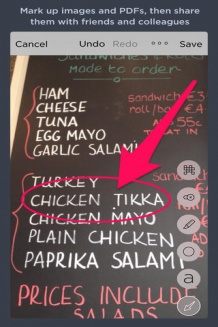 Mark up images and PDFs, then share
them with friends and colleagues
Cancel Undo Redo Save
made to order
HAM
CHEESE
TUNA
EGG MAYO
GARLIC SALAMI
sandwich €3
roll/
55c
EAT IN
TURKEY
CHICKEN TIKKA
CHICKEN MAYO
PLAIN CHICKEN
PAPRIKA SALAM
PRICES INCLUD
SALADS
a